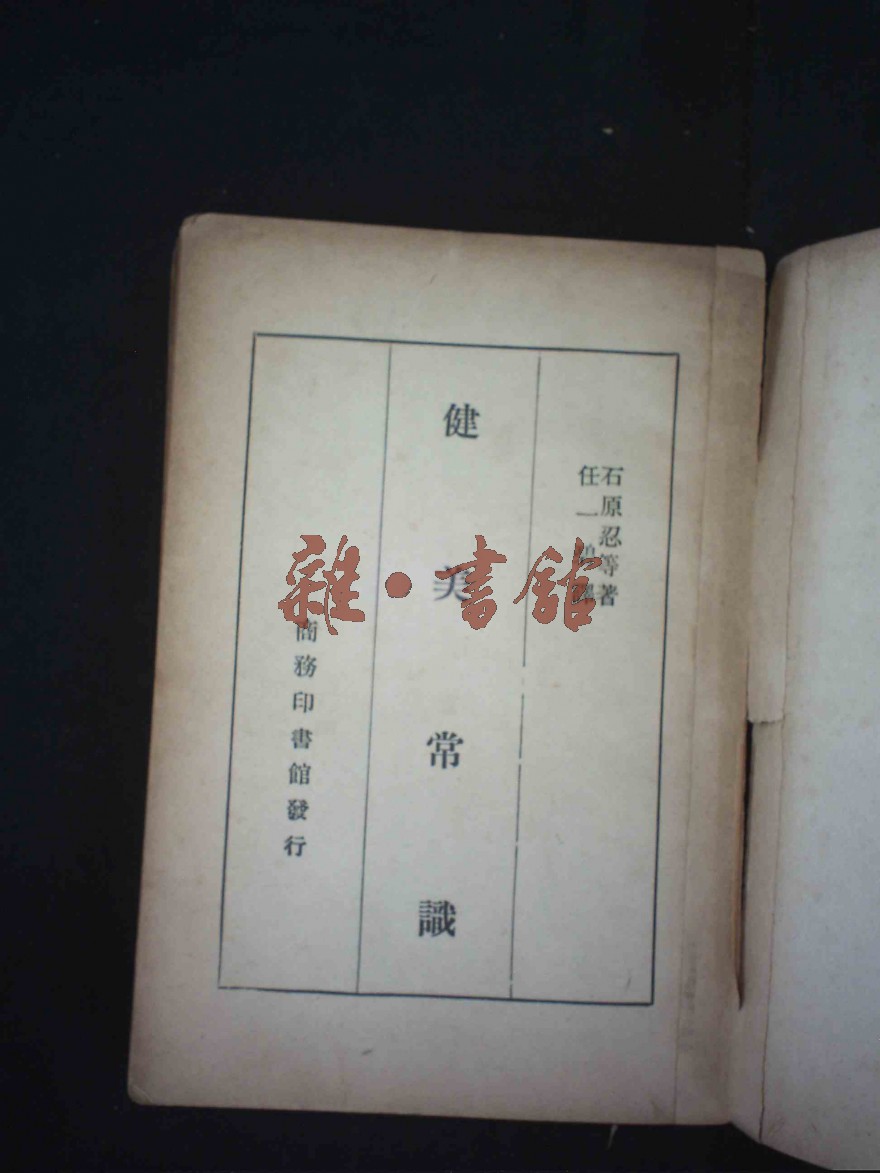 石原忍等著
任一 譯
健美常識
商務印書館發行
雜·書館